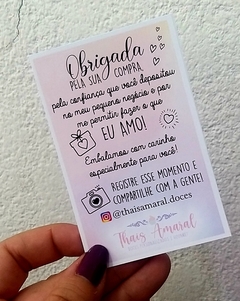 Obrigada
PELA SUA COMPRA,
pela confiança que você depositou
no meu pequeno negócio e por
me permitir fazer o que
EU AMO!
Embalamos com carinho
especialmente para você!
REGISTRE ESSE MOMENTO E
COMPARTILHE COM A GENTE!
@thaisamaral.doces
Thais Amaral